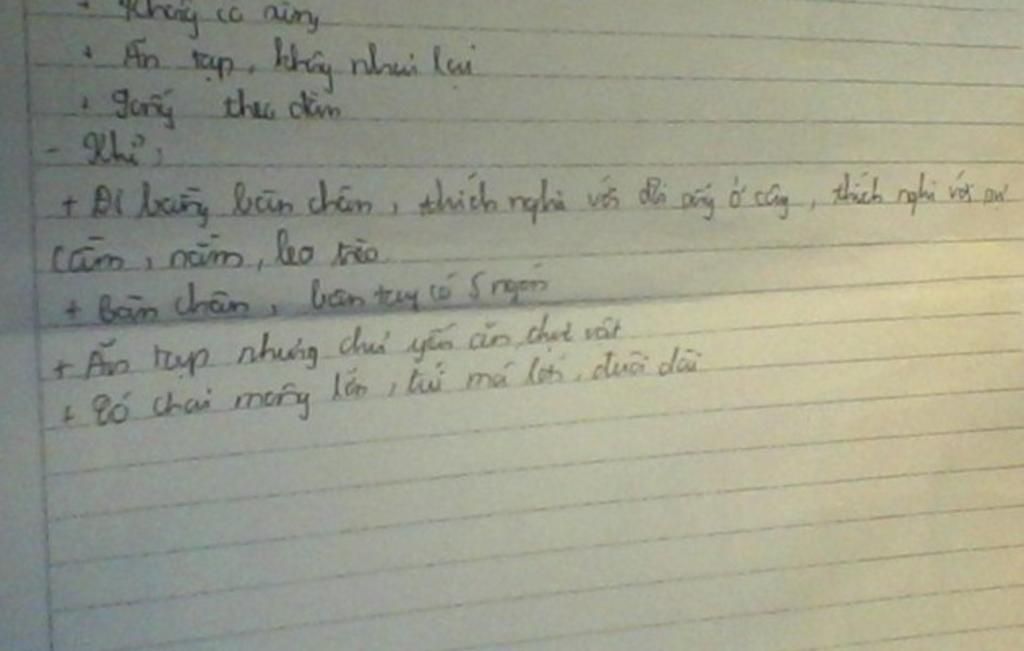 + Không có sừng
+ Ăn tạp, không nhai lại
+ Sống theo đàn
- Khỉ:
+ Đi bằng bàn chân, thích nghi với đời sống ở cây, thích nghi với sự
cầm, nắm, leo trèo
+ Bàn chân, bàn tay có 5 ngón
+ Ăn tạp nhưng chủ yếu ăn thực vật
+ Có chai mông lớn, túi má lớn, đuôi dài